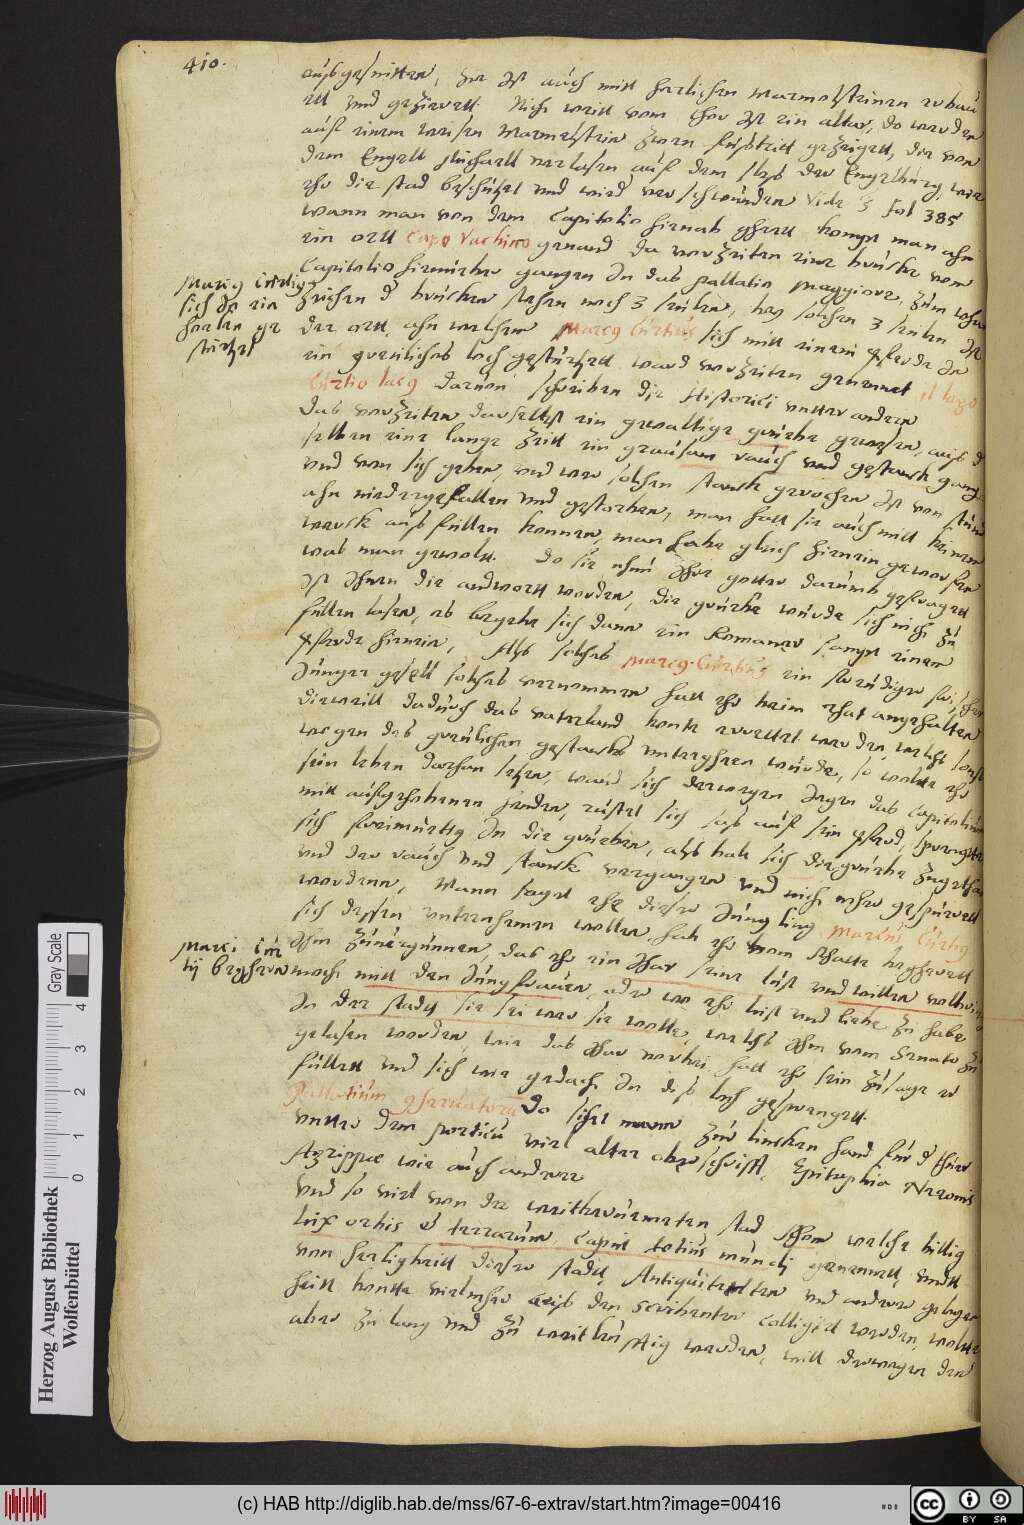 410.
außgeschnitten, der ist auch mitt herlichen Marmelsteinen erbau
ett und geziert. Nich weitt vom Chor ist ein altar, do werden
auf einem weisen Marmelstein zween fußtritt gezeiget, die von
dem Engell Michaell verlasen auf dem schlos der Engelburg, wie
ehr die stad beschützet und wird verschwunden Vide 3 fol 385
wann man von dem Capitolio hienab gehett kompt man ahn
ein ortt Capo Vachino genand da vorzeiten eine brücke vom
Capitolio hienüber gangen in das pallatio maggiore, zum
zeichen d brücken stehen noch 3 seulen, bey solchen 3 seulen ist
Marcq Curtiq
sich do ein
der ortt, ahn welchem Marcq Curtius sich mitt einem pferde in
stürtzet
ein greulichs loch gestürtzett ward vorzeiten genennet il lago
Curtio lacq darvon schreiben die Historici unter andern
das vorzeiten daselbst ein gewaltige grube gewesen, aus d
selben eine lange zeitt ein grausam rauch und gestanck gang
und von sich geben, und wer solchen stanck gerochen ist von stund
ahn niedergefallen und gestorben, man hatt sie auch mitt keinem
werck ausfüllen konnen, man habe gleich hienein geworfen
was man gewolt. do sie nhun ihre götter darumb gefraget
ist ihnen die andwortt worden, die grube würde sich nich zu
füllen lasen, es begebe sich dann ein Romaner sampt einem
pferde hienein, Als solchs Marcq. Curtius ein freudiger
Jünger gesell solchs vernommen hatt ehr beim Rhat angehalten
dieweill dadurch das vaterland konte errettet werden, welchs sonst
wegen des greulichen gestancks untergehen würde, so wolte ehr
sein leben daran setzen, wand sich derwegen gegen das Capitolium
mitt aufgehobenen henden, rüstet sich sas auf sein pferd, sprengete
sich freimütig in die gruben, als bald sich die grube zugethan
und der rauch und stanck vergangen und nich mehr gespüret
worden, Mann saget ehe dieser Jüngling Marcus Curtiq
sich dessen unternehmen wollen hab ehr vom Rhatte begerett
Marci Cur
tij begheren
ihm zuvergunnen, das ehr ein Jhar seine lust und willen
moche mitt den Jungfrauen, oder wo ehr lust und liebe zu habe
in der stadt sie sei wer sie wolle, welchs ihm vom Senato zu
gelasen worden, wie das Jhar vorbei hatt ehr sein zusage er
füllett und sich wie gedacht in das loch gesprenget.
do sihet mann zur lincken hand für d thüre
unter dem porticu viel alter oberschrifft, Epitaphia Neronis
Agrippae wie auch anderer
Und so viel von der weittberümeten stad Rhom welche billig
lux orbis et terrarum caput totius mundi genennett, undt
von herligkeitt dieser stadt, Antiquiteten und andern gelegen
heitt konte vielmehr aus den Scribenten colligirt werden, wolte
aber zu lang und zu weitleuftig werden, will derwegen den
Herzog August Bibliothek
Wolfenbüttel
0 1 2 3 4
Gray Scale
(c) HAB http://diglib.hab.de/mss/67-6-extrav/start.htm?image=00416
cc BY SA